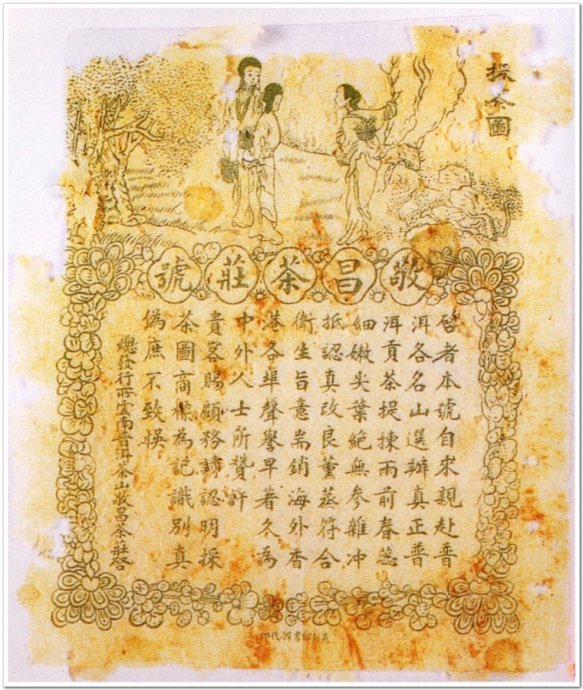 採茶圖
敬昌茶莊號
啓者本號自來親赴普
洱各名山選辦真正普
洱貢茶提揀雨前春蕊
細嫩尖葉絕無參雜冲
抵認真改良薰蒸符合
衛生旨意耑銷海外香
港各埠聲譽早著久為
中外人士所贊許
貴客賜顧務請認明採
茶圖商標為記識別真
偽庶不致悮
總發行所雲南普洱茶山敬昌茶莊啓